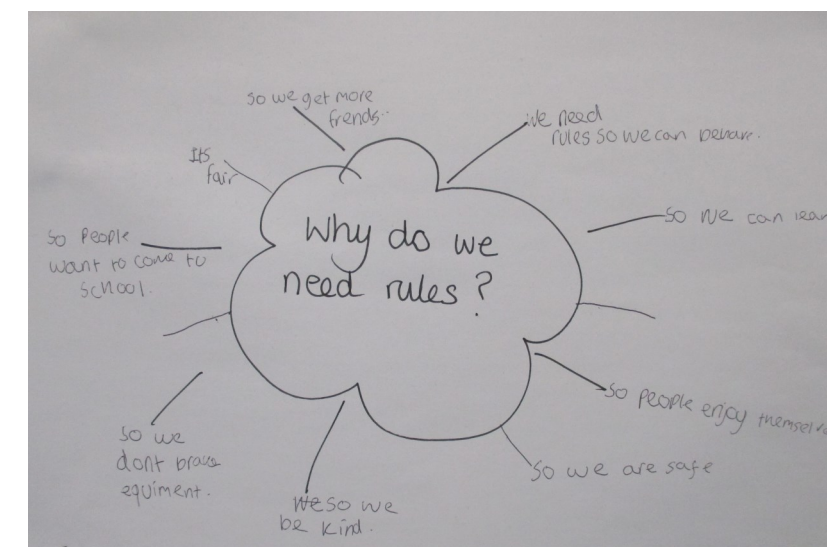 Why do we
need rules?
so we get more
frends..
we need
rules so we can behave.
so we can lear
so people enjoy themselve
so we are safe
We so we
be kind.
so we
dont brake
equiment.
so people
want to come to
school.
Its
fair